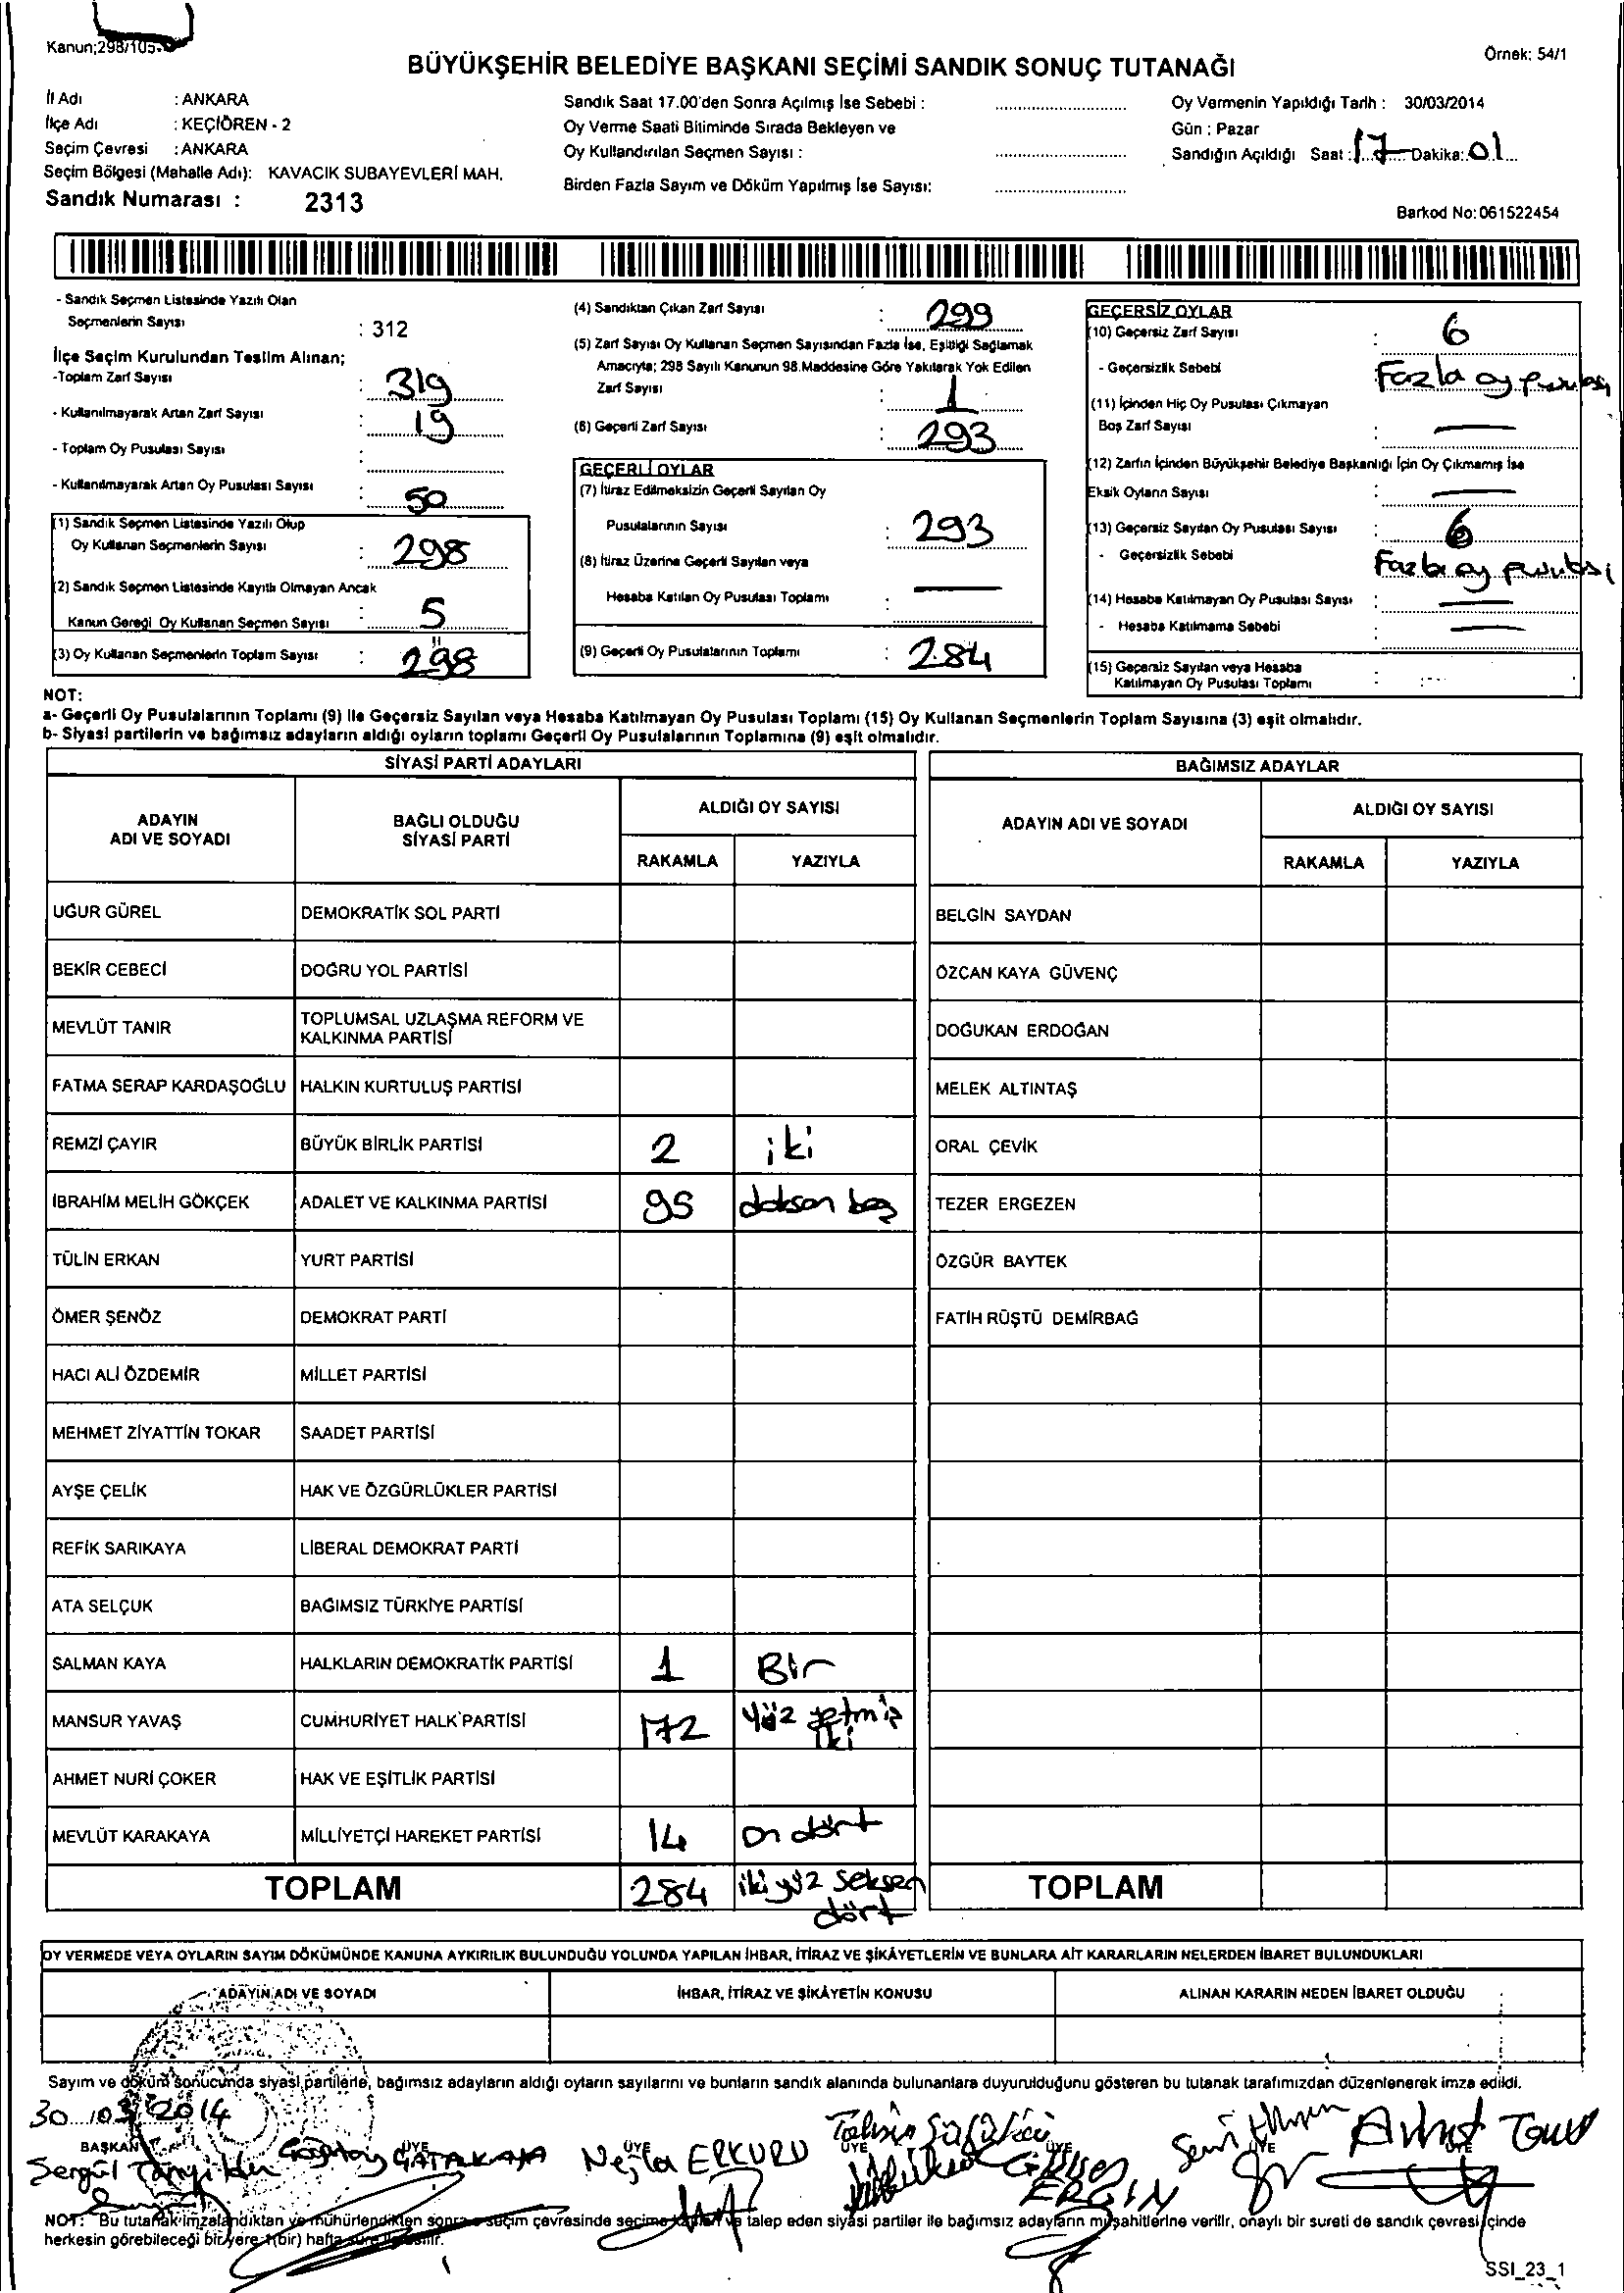 Kanun;298/105
Örnek: 54/1
BÜYÜKŞEHİR BELEDİYE BAŞKANI SEÇİMİ SANDIK SONUÇ TUTANAĞI
İl Adı : ANKARA
İlçe Adı : KEÇİÖREN - 2
Seçim Çevresi : ANKARA
Seçim Bölgesi (Mahalle Adı): KAVACIK SUBAYEVLERİ MAH.
Sandık Numarası : 2313
Sandık Saat 17.00'den Sonra Açılmış İse Sebebi :
Oy Verme Saati Bitiminde Sırada Bekleyen ve
Oy Kullandırılan Seçmen Sayısı :
Birden Fazla Sayım ve Döküm Yapılmış İse Sayısı:
Oy Vermenin Yapıldığı Tarih : 30/03/2014
Gün : Pazar
Sandığın Açıldığı Saat : 17 Dakika: 01
Barkod No: 061522454
- Sandık Seçmen Listesinde Yazılı Olan
Seçmenlerin Sayısı : 312
İlçe Seçim Kurulundan Teslim Alınan;
-Toplam Zarf Sayısı : 319
- Kullanılmayarak Artan Zarf Sayısı : 19
- Toplam Oy Pusulası Sayısı :
- Kullanılmayarak Artan Oy Pusulası Sayısı : 50
(1) Sandık Seçmen Listesinde Yazılı Olup
Oy Kullanan Seçmenlerin Sayısı : 298
(2) Sandık Seçmen Listesinde Kayıtlı Olmayan Ancak
Kanun Gereği Oy Kullanan Seçmen Sayısı : 5
(3) Oy Kullanan Seçmenlerin Toplam Sayısı : 298
(4) Sandıktan Çıkan Zarf Sayısı : 299
(5) Zarf Sayısı Oy Kullanan Seçmen Sayısından Fazla İse, Eşitliği Sağlamak
Amacıyla; 298 Sayılı Kanunun 98.Maddesine Göre Yakılarak Yok Edilen
Zarf Sayısı : 1
(6) Geçerli Zarf Sayısı : 293
GEÇERLİ OYLAR
(7) İtiraz Edilmeksizin Geçerli Sayılan Oy
Pusulalarının Sayısı : 293
(8) İtiraz Üzerine Geçerli Sayılan veya
Hesaba Katılan Oy Pusulası Toplamı : —
(9) Geçerli Oy Pusulalarının Toplamı : 284
GEÇERSİZ OYLAR
(10) Geçersiz Zarf Sayısı : 6
- Geçersizlik Sebebi : Fazla oy pusulası
(11) İçinden Hiç Oy Pusulası Çıkmayan
Boş Zarf Sayısı : —
(12) Zarfın İçinden Büyükşehir Belediye Başkanlığı İçin Oy Çıkmamış İse
Eksik Oyların Sayısı : —
(13) Geçersiz Sayılan Oy Pusulası Sayısı : 6
- Geçersizlik Sebebi : Fazla oy pusulası
(14) Hesaba Katılmayan Oy Pusulası Sayısı : —
- Hesaba Katılmama Sebebi : —
(15) Geçersiz Sayılan veya Hesaba
Katılmayan Oy Pusulası Toplamı :
NOT:
a- Geçerli Oy Pusulalarının Toplamı (9) ile Geçersiz Sayılan veya Hesaba Katılmayan Oy Pusulası Toplamı (15) Oy Kullanan Seçmenlerin Toplam Sayısına (3) eşit olmalıdır.
b- Siyasi partilerin ve bağımsız adayların aldığı oyların toplamı Geçerli Oy Pusulalarının Toplamına (9) eşit olmalıdır.
SİYASİ PARTİ ADAYLARI
ADAYIN ADI VE SOYADI
BAĞLI OLDUĞU SİYASİ PARTİ
ALDIĞI OY SAYISI
RAKAMLA YAZIYLA
UĞUR GÜREL DEMOKRATİK SOL PARTİ
BEKİR CEBECİ DOĞRU YOL PARTİSİ
MEVLÜT TANIR TOPLUMSAL UZLAŞMA REFORM VE
KALKINMA PARTİSİ
FATMA SERAP KARDAŞOĞLU HALKIN KURTULUŞ PARTİSİ
REMZİ ÇAYIR BÜYÜK BİRLİK PARTİSİ 2 iki
İBRAHİM MELİH GÖKÇEK ADALET VE KALKINMA PARTİSİ 95 doksan beş
TÜLİN ERKAN YURT PARTİSİ
ÖMER ŞENÖZ DEMOKRAT PARTİ
HACI ALİ ÖZDEMİR MİLLET PARTİSİ
MEHMET ZİYATTİN TOKAR SAADET PARTİSİ
AYŞE ÇELİK HAK VE ÖZGÜRLÜKLER PARTİSİ
REFİK SARIKAYA LİBERAL DEMOKRAT PARTİ
ATA SELÇUK BAĞIMSIZ TÜRKİYE PARTİSİ
SALMAN KAYA HALKLARIN DEMOKRATİK PARTİSİ 1 Bir
MANSUR YAVAŞ CUMHURİYET HALK PARTİSİ 172 yüz yetmiş iki
AHMET NURİ ÇOKER HAK VE EŞİTLİK PARTİSİ
MEVLÜT KARAKAYA MİLLİYETÇİ HAREKET PARTİSİ 14 on dört
TOPLAM 284 iki yüz seksen dört
BAĞIMSIZ ADAYLAR
ADAYIN ADI VE SOYADI
ALDIĞI OY SAYISI
RAKAMLA YAZIYLA
BELGİN SAYDAN
ÖZCAN KAYA GÜVENÇ
DOĞUKAN ERDOĞAN
MELEK ALTINTAŞ
ORAL ÇEVİK
TEZER ERGEZEN
ÖZGÜR BAYTEK
FATİH RÜŞTÜ DEMİRBAĞ
TOPLAM
OY VERMEDE VEYA OYLARIN SAYIM DÖKÜMÜNDE KANUNA AYKIRILIK BULUNDUĞU YOLUNDA YAPILAN İHBAR, İTİRAZ VE ŞİKÂYETLERİN VE BUNLARA AİT KARARLARIN NELERDEN İBARET BULUNDUKLARI
ADAYIN ADI VE SOYADI
İHBAR, İTİRAZ VE ŞİKÂYETİN KONUSU
ALINAN KARARIN NEDEN İBARET OLDUĞU
Sayım ve döküm sonucunda siyasi partilerle, bağımsız adayların aldığı oyların sayılarını ve bunların sandık alanında bulunanlara duyurulduğunu gösteren bu tutanak tarafımızdan düzenlenerek imza edildi.
30/03/2014
BAŞKAN ÜYE ÜYE ÜYE ÜYE ÜYE ÜYE
Sergül
Nejla ERKURU
Gülşen ERGİN
NOT: Bu tutanak imzalandıktan ve mühürlendikten sonra seçim çevresinde seçime katılan ve talep eden siyasi partiler ile bağımsız adayların müşahitlerine verilir, onaylı bir sureti de sandık çevresi içinde
herkesin görebileceği bir yere 1(bir) hafta süre ile asılır.
SSI_23_1